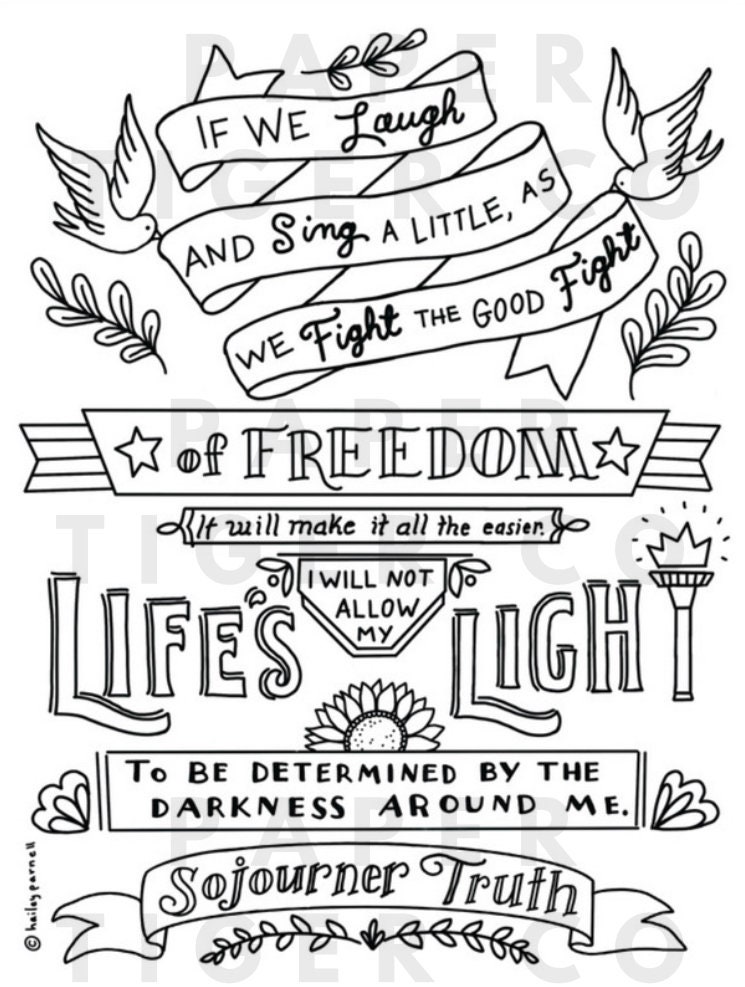 PAPER
IF WE Laugh
TIGER CO
AND Sing A LITTLE, AS
WE Fight THE GOOD Fight
PAPER
of FREEDOM
It will make it all the easier.
TIGER CO
I WILL NOT
ALLOW
MY
LIFE'S LIGHT
TO BE DETERMINED BY THE
DARKNESS AROUND ME.
PAPER
Sojourner Truth
TIGER CO
© haileyparnell